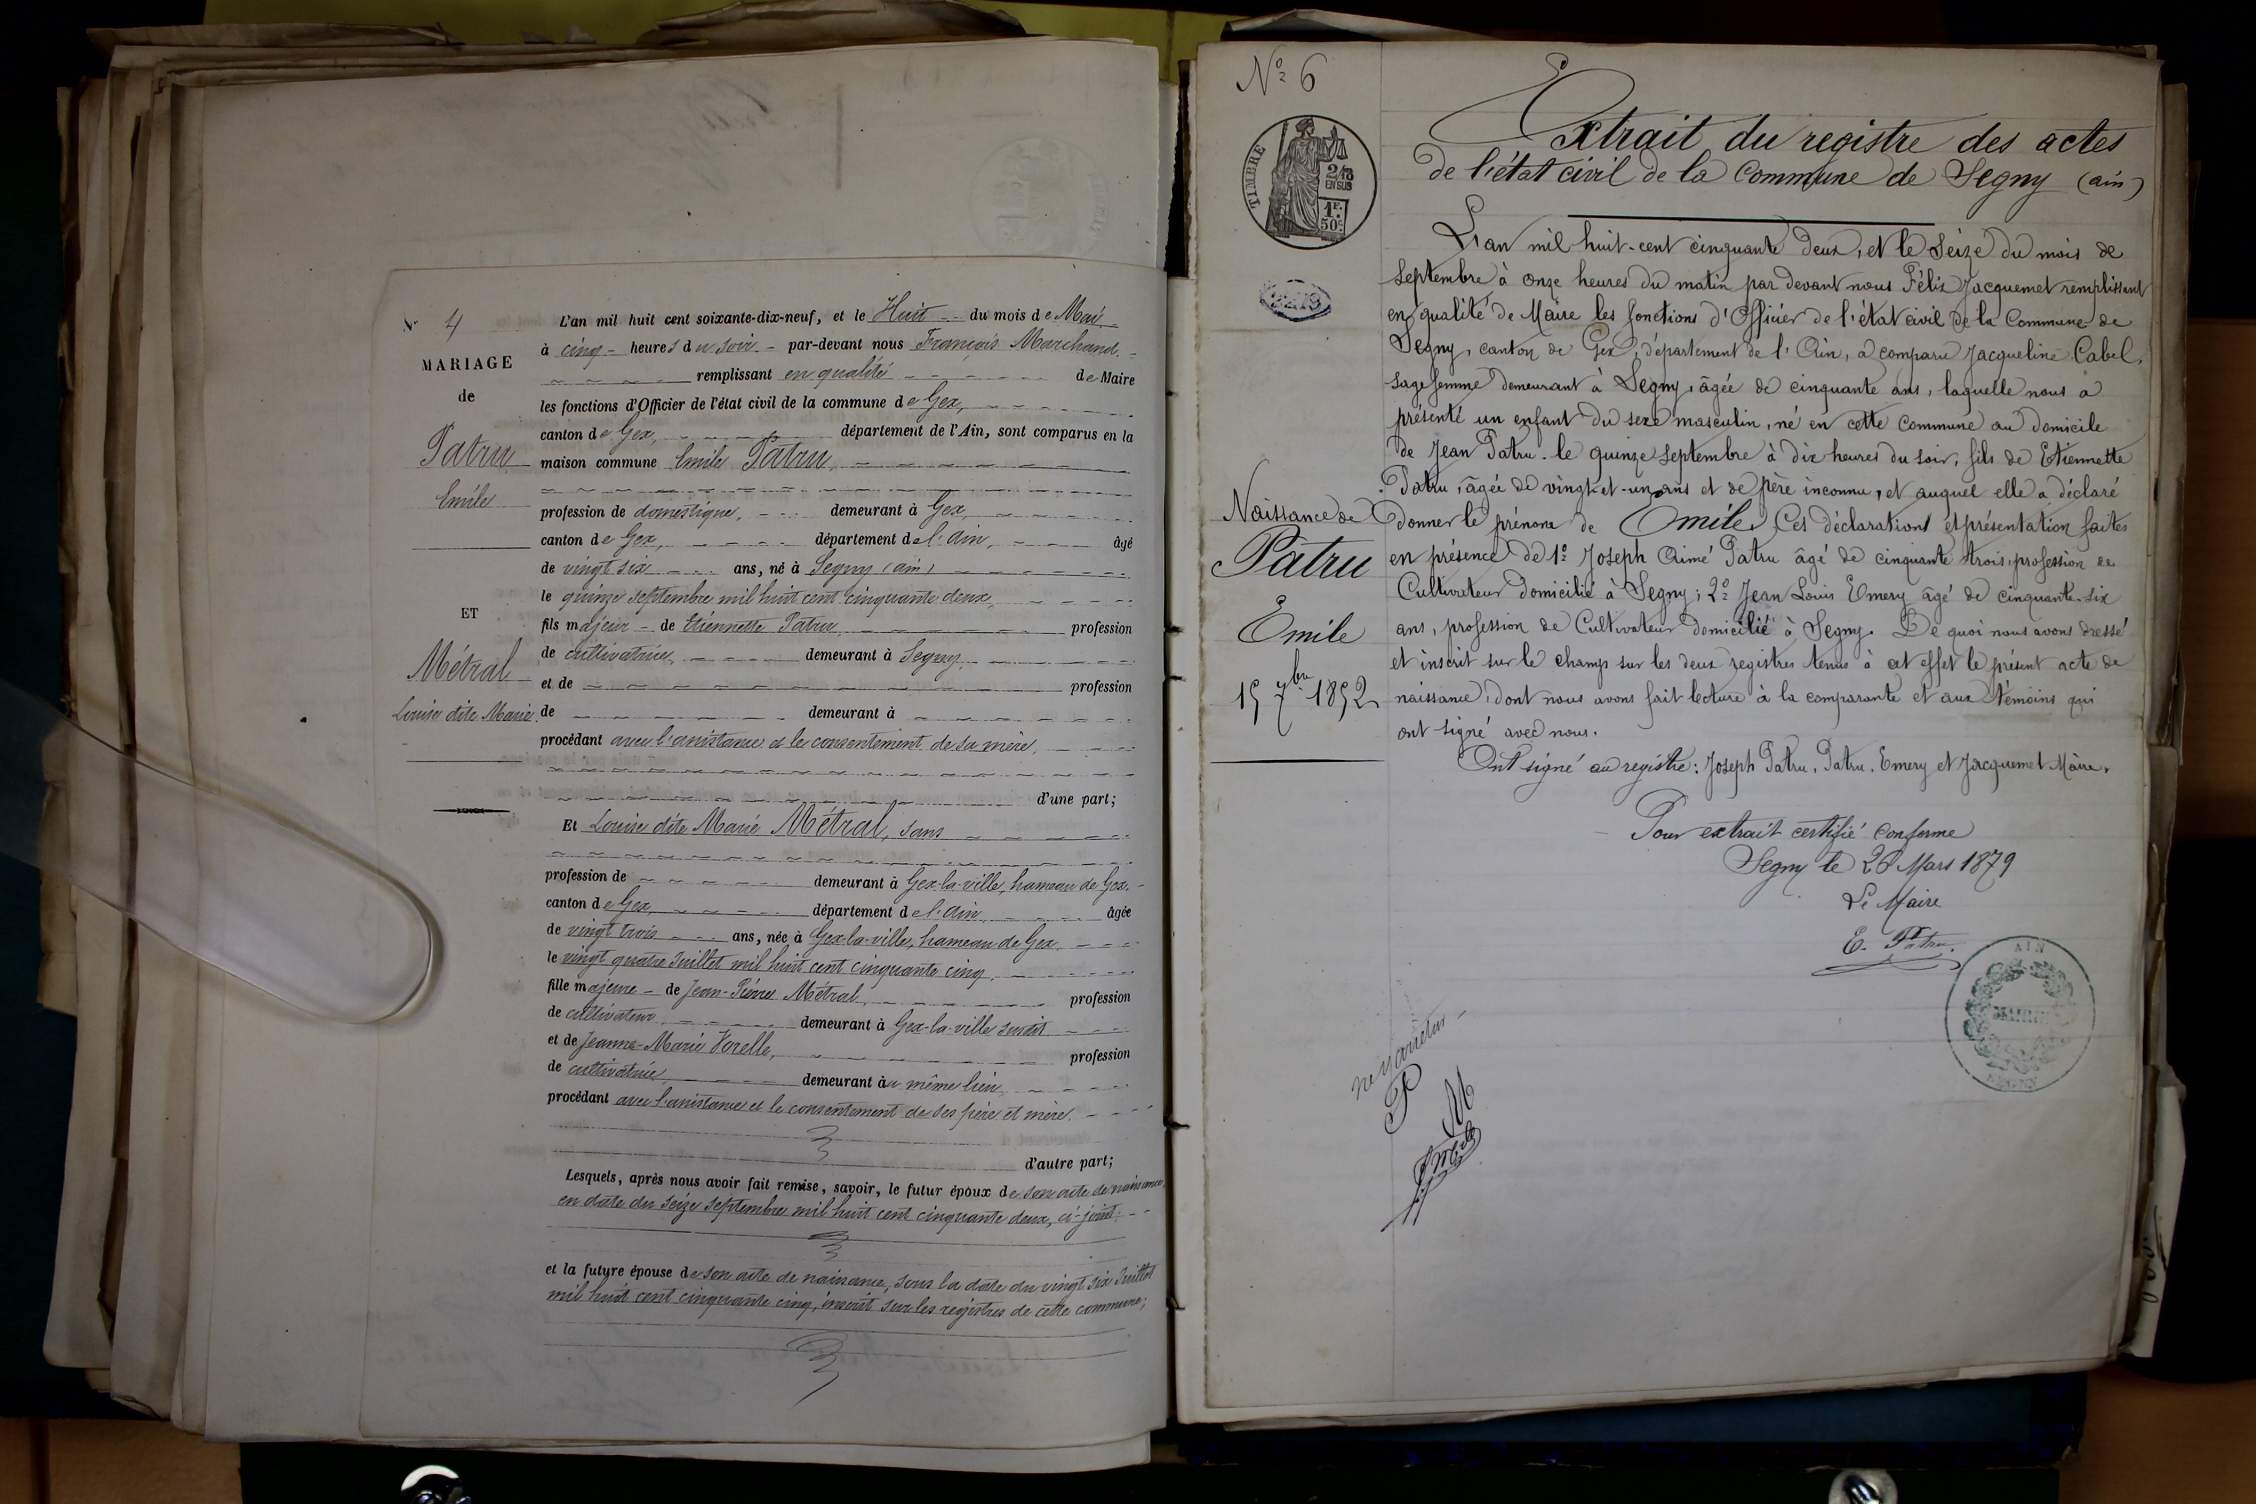 N° 4
MARIAGE
de
Patru
Emile
ET
Métral
Louise dite Marie
L'an mil huit cent soixante-dix-neuf, et le Huit du mois de Mai
à cinq heures du soir par-devant nous François Marchand
remplissant en qualité de Maire
les fonctions d'Officier de l'état civil de la commune de Gex,
canton de Gex, département de l'Ain, sont comparus en la
maison commune Emile Patru,
profession de domestique, demeurant à Gex,
canton de Gex, département de l'Ain, âgé
de vingt six ans, né à Segny (ain)
le quinze septembre mil huit cent cinquante deux,
fils majeur de Etiennette Patru, profession
de cultivatrice, demeurant à Segny,
et de profession
de demeurant à
procédant avec l'assistance et le consentement de sa mère,
d'une part;
Et Louise dite Marie Métral, sans
profession de demeurant à Gex-la-ville, hameau de Gex,
canton de Gex, département de l'Ain, âgée
de vingt trois ans, née à Gex-la-ville, hameau de Gex,
le vingt quatre Juillet mil huit cent cinquante cinq,
fille majeure de Jean-Pierre Métral, profession
de cultivateur, demeurant à Gex-la-ville susdit
et de Jeanne-Marie profession
de cultivatrice demeurant au même lieu,
procédant avec l'assistance et le consentement de ses père et mère.
d'autre part;
Lesquels, après nous avoir fait remise, savoir, le futur époux de son acte de naissance,
en date du seize septembre mil huit cent cinquante deux, ci-joint;
et la future épouse de son acte de naissance, sous la date du vingt six Juillet
mil huit cent cinquante cinq, inscrit sur les registres de cette commune;
N° 6
TIMBRE
2/10
EN SUS
1F.
50c
Extrait du registre des actes
de l'état civil de la Commune de Segny (ain)
L'an mil huit-cent cinquante deux, et le Seize du mois de
Septembre à onze heures du matin par devant nous Félix Jacquemet remplissant
en qualité de Maire les fonctions d'Officier de l'état civil de la Commune de
Segny, canton de Gex, département de l'Ain, a comparu Jacqueline Cabel,
sage femme demeurant à Segny, âgée de cinquante ans, laquelle nous a
présenté un enfant du sexe masculin, né en cette commune au domicile
de Jean Patru. le quinze septembre à dix heures du soir, fils de Etiennette
Patru, âgée de vingt-et-un ans et de père inconnu, et auquel elle a déclaré
donner le prénom de Emile. Ces déclarations et présentation faites
en présence de 1° Joseph Aimé Patru âgé de cinquante trois, profession de
Cultivateur domicilié à Segny; 2° Jean Louis Emery âgé de cinquante-six
ans, profession de Cultivateur domicilié à Segny. De quoi nous avons dressé
et inscrit sur le champ sur les deux registres tenus à cet effet le présent acte de
naissance, dont nous avons fait lecture à la comparante et aux témoins qui
ont signé avec nous.
Ont signé au registre: Joseph Patru, Patru, Emery et Jacquemet Maire.
Naissance de
Patru
Emile
15 7bre 1852
Pour extrait certifié conforme
Segny le 26 Mars 1879
Le Maire
E. Patru
AIN
MAIRIE
SEGNY
ne varietur
P M